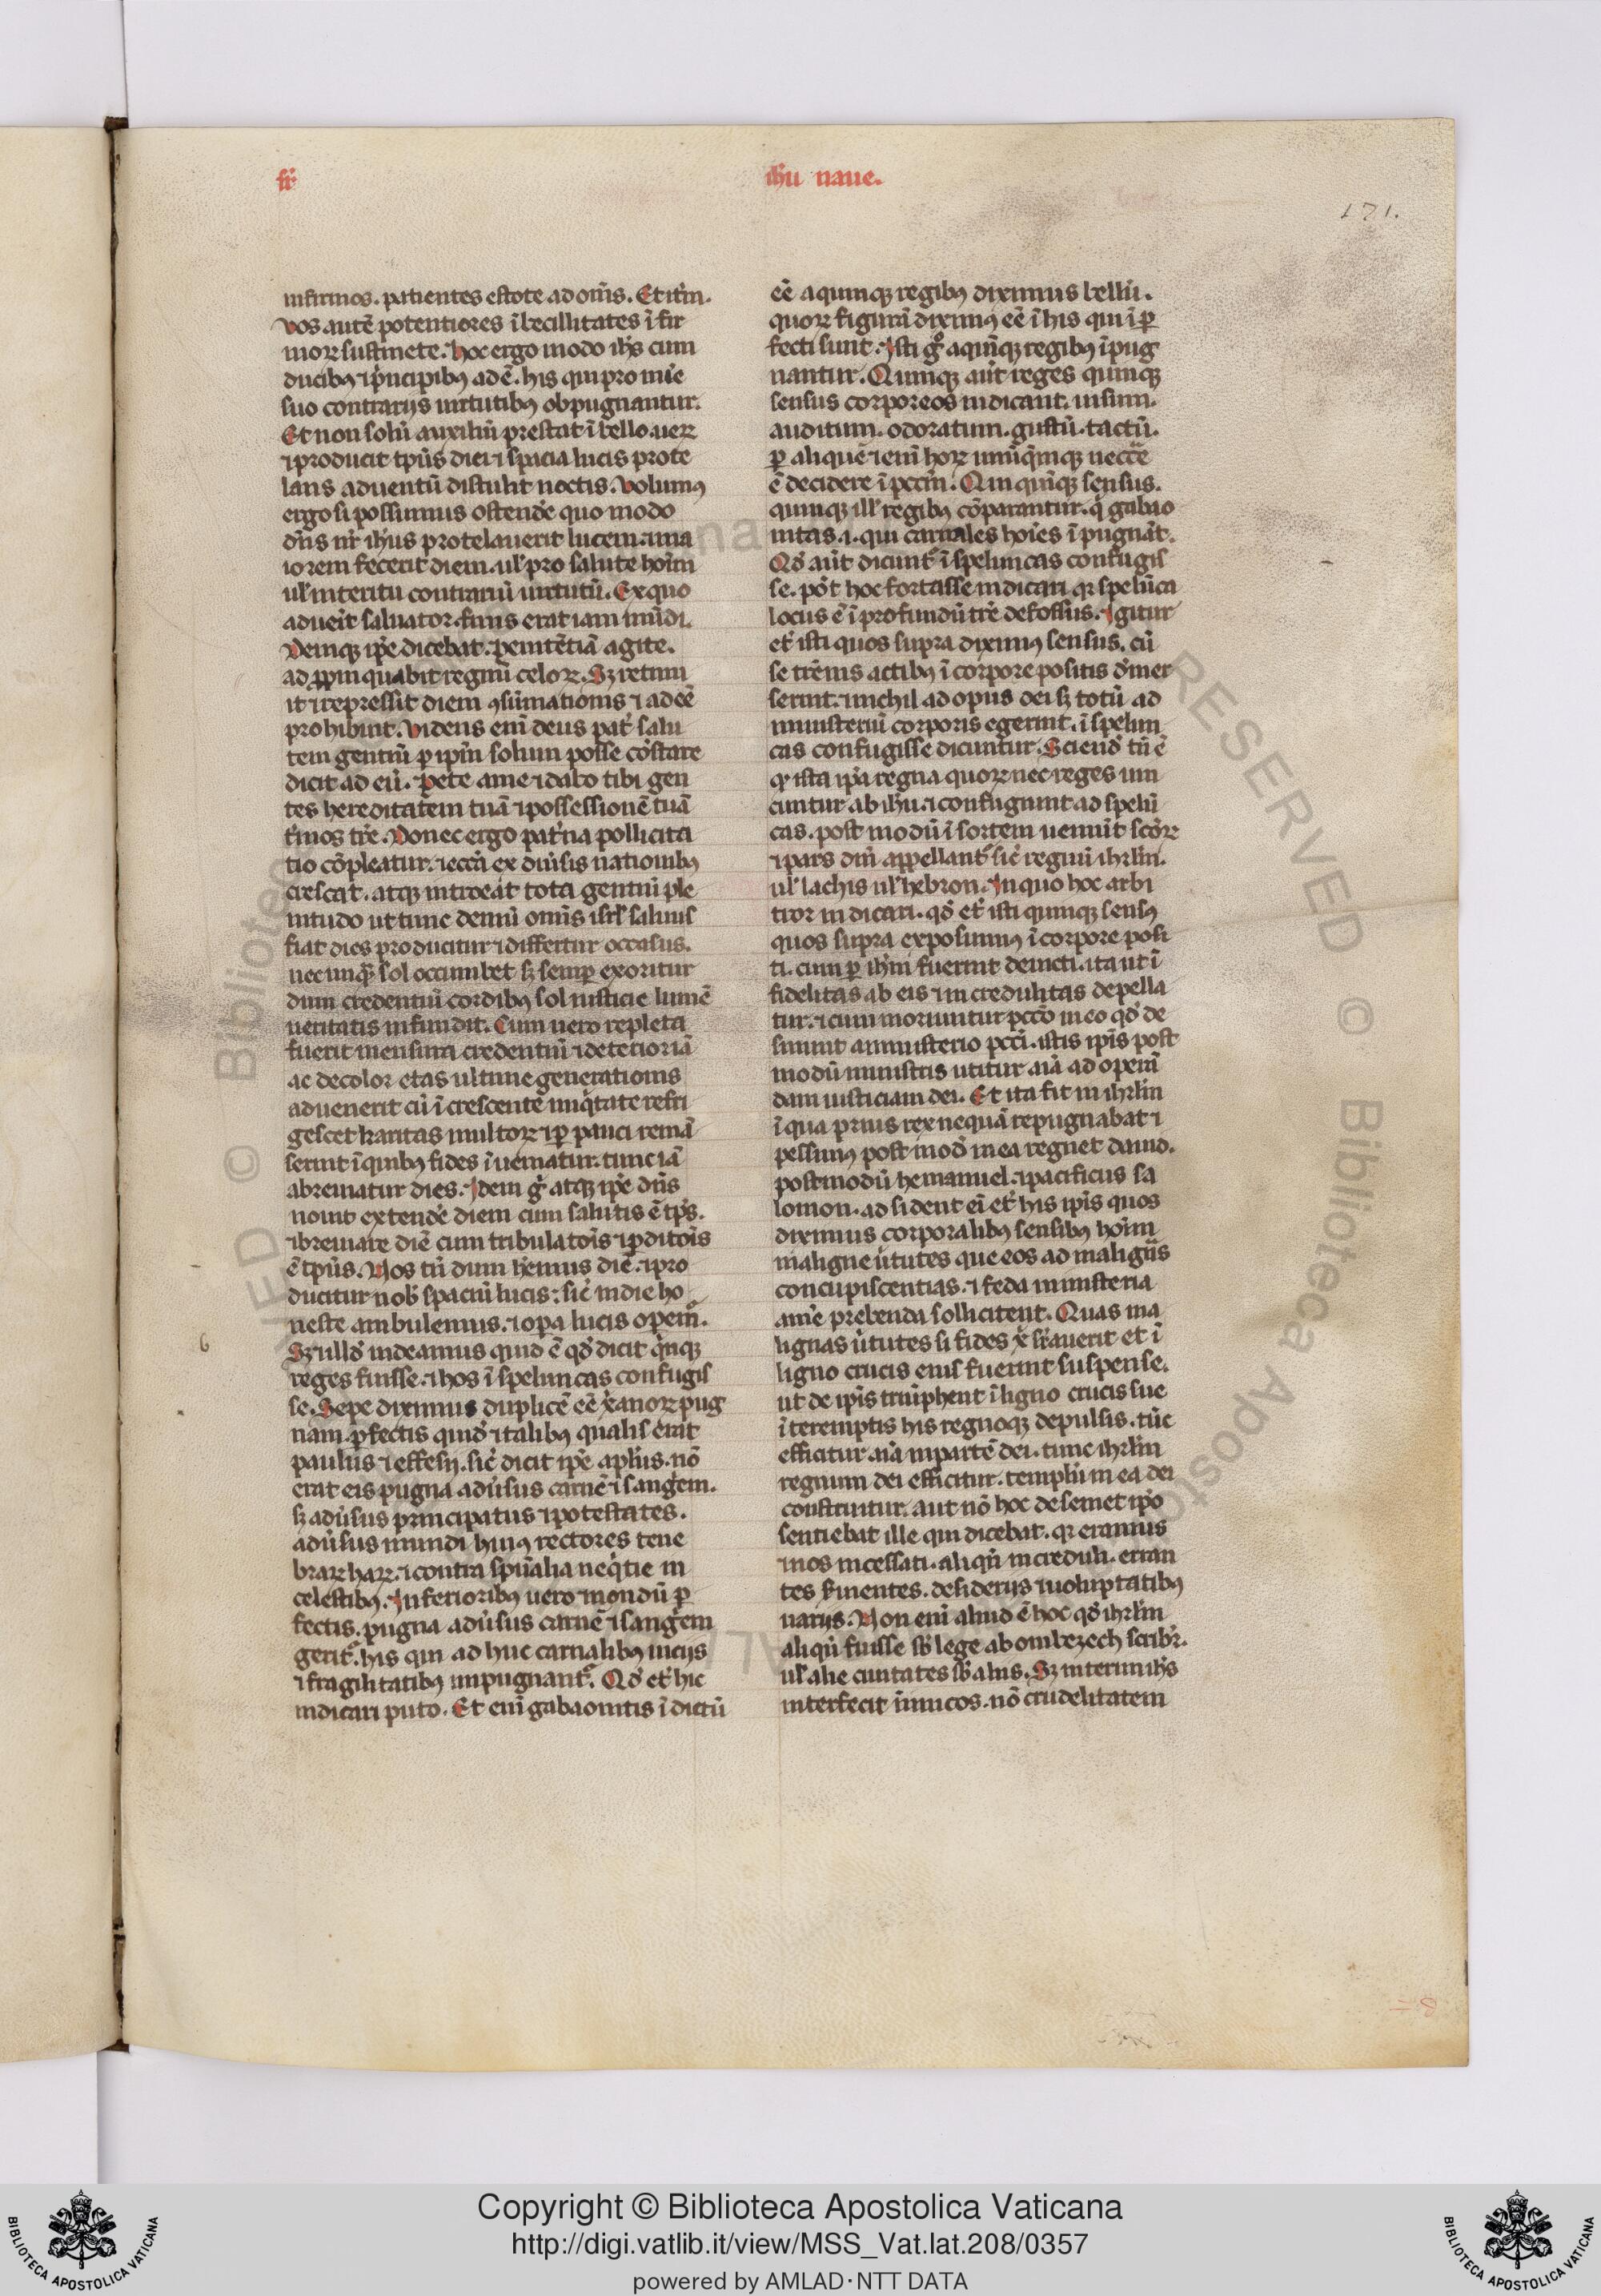 fr̄
ih̄u naue.
171.
infirmos. patientes estote ad om̄s. Et it̄m.
vos autē potentiores ībecillitates īfir
moꝝ sustinete. hoc ergo modo ih̄s cum
ducibꝰ ⁊ p̄ncipibꝰ adē. his qui pro noīe
suo contrarijs uirtutibꝰ obpugnantur.
Et non solū auxiliū prestat ī bello. ueꝝ
⁊ producit tp̄us diei ⁊ spacia lucis prote
lans aduentū distulit noctis. Volumꝰ
ergo si possumus ostende᷑ quo modo
dn̄s nr̄ ih̄us protelauerit lucem. ⁊ ma
iorem fecerit diem. ul᷑ pro salute hoīm
ul᷑ interitu contrariū uirtutū. Ex quo
adueīt saluator. finis erat iam mūdi.
Deniqꝫ ip̄e dicebat. penitētiā agite.
ad ꝓpinquabit regnū celoꝝ. Sꝫ retinu
it ⁊ repressit diem ꝯsūmationis ⁊ adeē
prohibuit. Videns enī deus pat᷑ salu
tem gentiū ꝑ ip̄m solum posse cōstare
dicit ad eū. Pete a me ⁊ dabo tibi gen
tes hereditatem tuā ⁊ possessionē tuā
t᷑minos tr̄e. Donec ergo pat᷑na pollicita
tio cōpleatur. ⁊ ecc̄ia ex diūsis nationibꝰ
crescat. atqꝫ introeat tota gentiū ple
nitudo ut tunc demū om̄is isrl᷑ saluus
fiat dies producitur ⁊ differtur occasus.
nec unq̄ sol occumbet sꝫ semꝑ exoritur
dum credentiū cordibꝰ sol iusticie lumē
ueritatis infundit. Cum uero repleta
fuerit mensura credentiū ⁊ deterioriā
ac decolor etas ultime generationis
aduenerit cū īcrescente īiq̄tate refri
gescet karitas multoꝝ ⁊ ꝑ pauci remā
serint ī quibꝰ fides īueniatur. tunc iā
abreuiatur dies. Idem g̊ atqꝫ ip̄e dn̄s
nouit extende᷑ diem cum salutis ē tp̄s.
⁊ breuiare diē cum tribulatōis ⁊ ꝑditōis
ē tp̄us. Nos tn̄ dum hēmus diē. ⁊ pro
ducitur nob̄ spaciū lucis: sic̄ in die ho
neste ambulemus. ⁊ opa lucis opem᷑.
Sꝫ illd̄ uideamus quid ē qd̄ dicit q̄nqꝫ
reges fuisse. ⁊ hos ī speluncas confugis
se. Sepe diximus duplicē eē xp̄ianoꝝ pug
nam. ꝑfectis quid̄ ⁊ talibꝰ qualis erat
paulus ⁊ effesij. sic̄ dicit ip̄e apl̄us. nō
erat eis pugna adūsus carnē ⁊ sangēm.
sꝫ adūsus principatus ⁊ potestates.
adūsus mundi huiꝰ rectores tene
braꝝ haꝝ. ⁊ contra spūalia neq̄tie in
celestibꝰ. Inferioribꝰ uero ⁊ nondū ꝑ
fectis. pugna adūsus carnē ⁊ sangēm
gerit᷑. his qui ad huc carnalibꝰ uicijs
⁊ fragilitatibꝰ impugnant᷑. Qd̄ et᷑ hic
indicari puto. Et enī gabaonitis īdictū
eē a quinqꝫ regibꝰ diximus bellū.
quoꝝ figurā diximꝰ eē ī his qui īꝑ
fecti sunt. Isti g̊ a quīqꝫ regibꝰ īpug
nantur. Quinqꝫ aūt reges quinqꝫ
sensus corporeos indicant. uisum.
auditum. odoratum. gustū. tactū.
ꝑ aliquē ⁊ enī hoꝝ unūq̄mqꝫ necc̄e
ē decidere ī pcc̄m. Qui quīqꝫ sensus.
quinqꝫ ill᷑ regibꝰ cōparantur. q̄ gabao
nitas .i. qui carnales hoīes īpugnāt.
Qd̄ aūt dicunt᷑ ī speluncas confugis
se. pōt hoc fortasse indicari qꝛ spelūca
locus ē ī profundū tr̄e defossus. Igitur
et᷑ isti quos supra diximꝰ sensus. cū
se trēnis actibꝰ ī corpore positis d᷑mer
serint. ⁊ nichil ad opus dei sꝫ totū ad
ministeriū corporis egerint. ī spelun
cas confugisse dicuntur. Sciend̄ tn̄ ē
qꝛ ista ip̄a regna quoꝝ nec reges uin
cuntur ab ih̄u. ⁊ confugiunt ad spelū
cas. post modū ī sortem ueniūt scōꝝ
⁊ pars dn̄i appellant᷑ sic̄ regnū ihrl̄m.
ul᷑ lachis ul᷑ hebron. In quo hoc arbi
tror indicari. qd̄ et᷑ isti quinqꝫ sensꝰ
quos supra exposuimꝰ ī corpore posi
ti. cum ꝑ ih̄m fuerint deuicti. ita ut ī
fidelitas ab eis ⁊ incredulitas depella
tur. ⁊ cum moriuntur pcc̄o in eo qd̄ de
sinunt a ministerio pcc̄i. istis ip̄is post
modū ministris utitur aīa ad operā
dam iusticiam dei. Et ita fit in ihrl̄m
ī qua prius rex nequā repugnabat ⁊
pessimꝰ post mod̄ in ea regnet dauid.
postmodū hemanuel. ⁊ pacificus sa
lomon. ad sident eī et᷑ his ip̄is quos
diximus corporalibꝰ sensibꝰ hoīm
maligne ūtutes que eos ad malignas
concupiscentias. ⁊ feda ministeria
aīme prebenda sollicitent. Quas ma
lignas ūtutes si fides xp̄i sup̄auerit et ī
ligno crucis eius fuerint suspense.
ut de ip̄is triūphent ī ligno crucis sue
īteremptis his regnoqꝫ depulsis. tūc
efficitur aīa in partē dei. tunc ihrl̄m
regnum dei efficitur. templū in ea dei
construitur. aut nō hoc de semet ip̄o
sentiebat ille qui dicebat. qꝛ eramus
⁊ nos incessati. aliqn̄ increduli. erran
tes s᷑uientes. desiderijs ⁊ uoluptatibꝰ
uarijs. Non enī aliud ē hoc qd̄ ihrl̄m
aliqn̄ fuisse sb̄ lege ab onibezech scribr᷑.
ul᷑ alie ciuitates sb̄ alijs. Sꝫ interim ih̄s
interfecit īimicos. nō crudelitatem
6
= 8
Copyright © Biblioteca Apostolica Vaticana
http://digi.vatlib.it/view/MSS_Vat.lat.208/0357
powered by AMLAD·NTT DATA
BIBLIOTECA APOSTOLICA VATICANA
BIBLIOTECA APOSTOLICA VATICANA